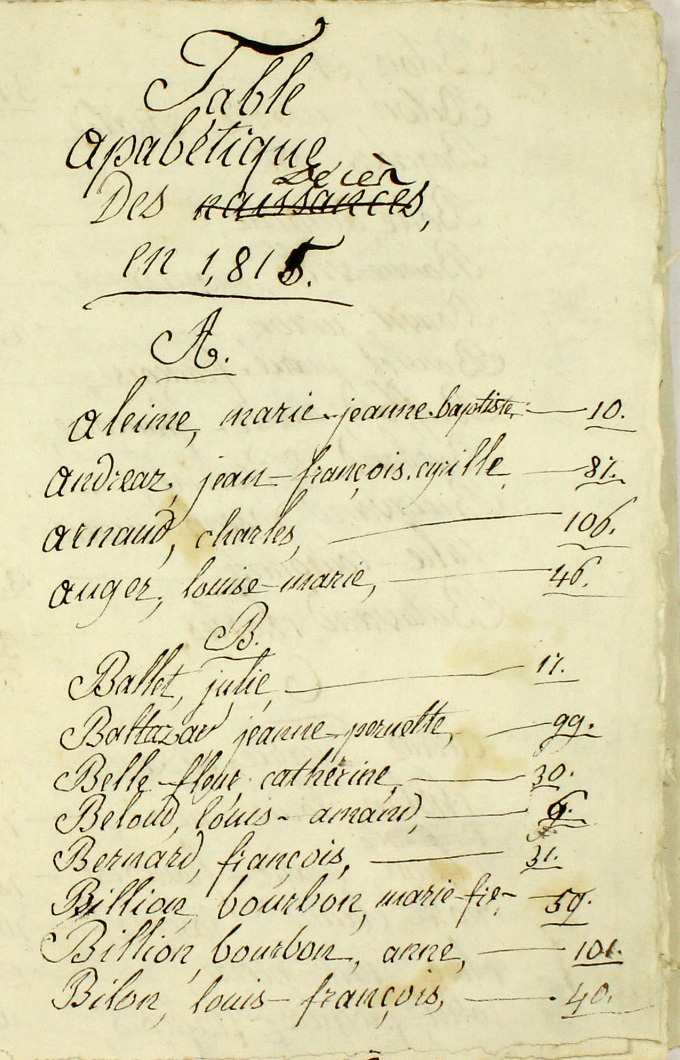 Table
apabétique
Décès
Des naissances,
en 1,815.
A.
aleime, marie-jeanne-baptiste, 10.
andrear, jean-françois-cyrille 87.
arnaud, charles, 106.
auger, louise-marie, 46.
B.
Ballet, julie, 17.
Baltazar jeanne-pernette, 99.
Belle-fleur catherine, 30.
Beloud, louis-amand, 9.
Bernard, françois, 31.
Billion, bourbon, marie-fse 59.
Billion, bourbon, anne, 101.
Bilon, louis-françois, 40.